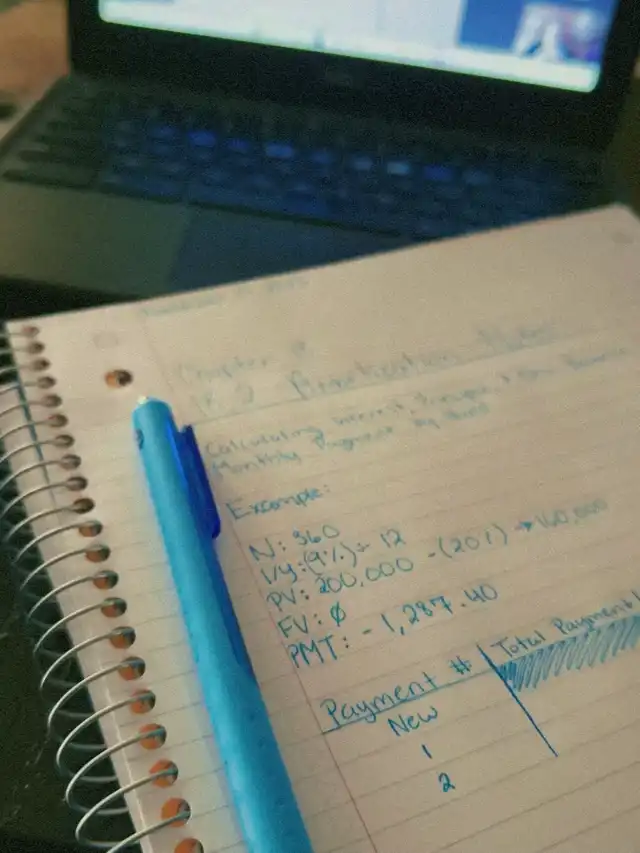 Chapter
Calculating interest, Principal
Monthly Payment by Hand
Example:
N: 360
I/Y: (9%) ÷ 12
PV: 200,000 - (20%) → 160,000
FV: Ø
PMT: - 1,287.40
Payment # Total Payment
New
1
2